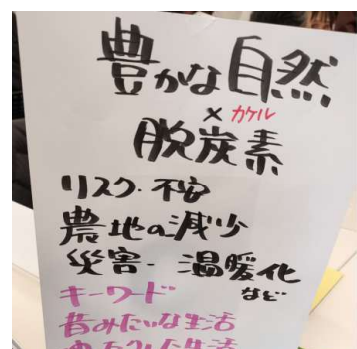 豊かな自然
× カケル
脱炭素
リスク・不安
農地の減少
災害・温暖化
など
キーワード
昔みたいな生活